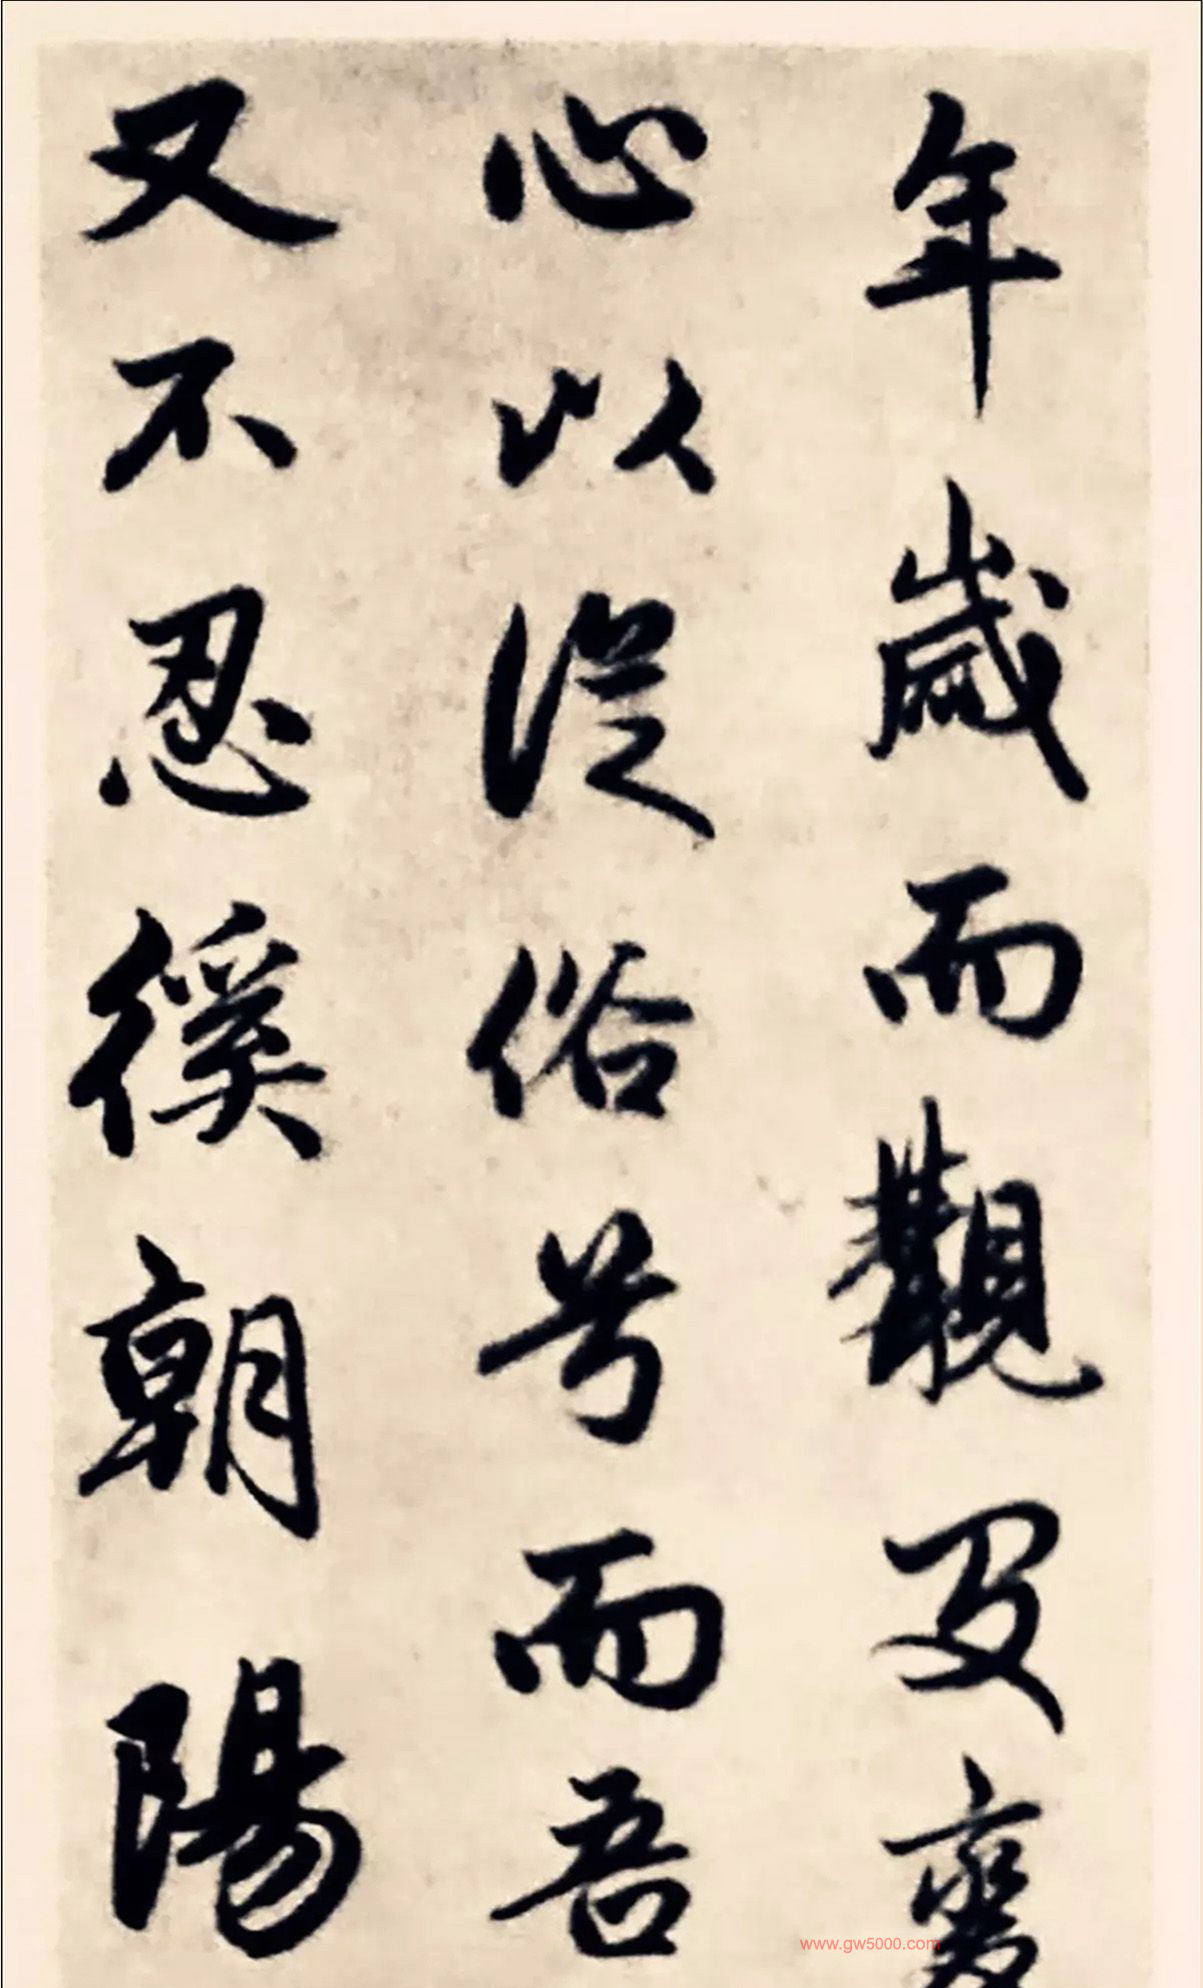 年歲而觀
心以從俗兮而吾
又不忍徯朝陽
www.gw5000.com